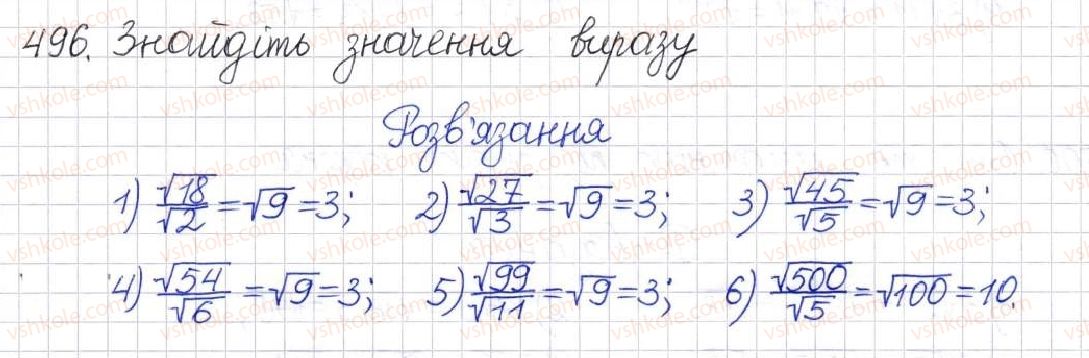 496. Знайдіть значення виразу
Розв'язання
1) √18/√2 = √9 = 3; 2) √27/√3 = √9 = 3; 3) √45/√5 = √9 = 3;
4) √54/√6 = √9 = 3; 5) √99/√11 = √9 = 3; 6) √500/√5 = √100 = 10.